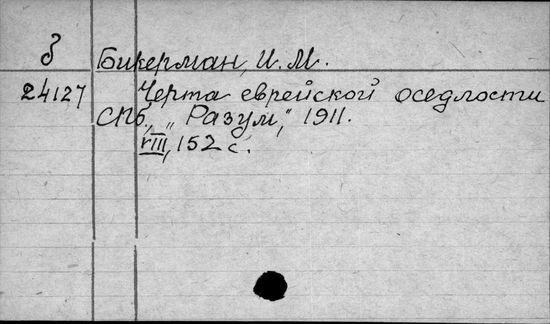 δ Бикерман, И. М.
24127 Черта еврейской оседлости
СПб., „Разум,“ 1911.
VIII, 152 с.